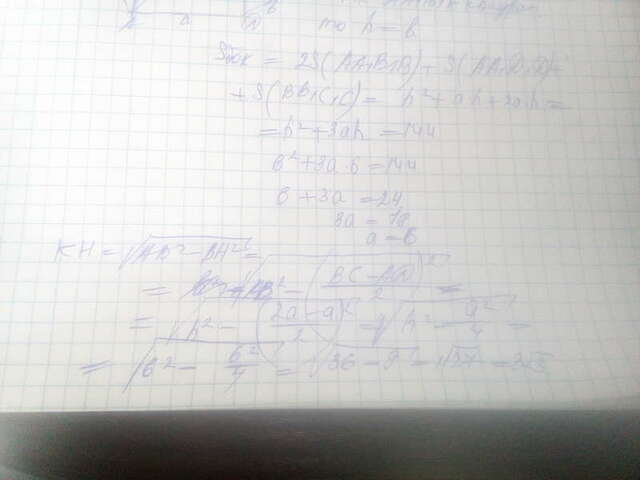 a
то h = 6
Sбок = 2S(AA₁B₁B) + S(AA₁D₁D) +
+ S(BB₁C₁C) = h² + ah + 2ah =
= h² + 3ah = 144
6² + 3a·6 = 144
6 + 3a = 24
3a = 18
a = 6
KH = √(AB² - BH²) =
= AB² - (BC - AD / 2)² =
= √(h² - (2a - a / 2)²) = √(h² - a²/4) =
= √(6² - 6²/4) = √(36 - 9) = √27 = 3√3